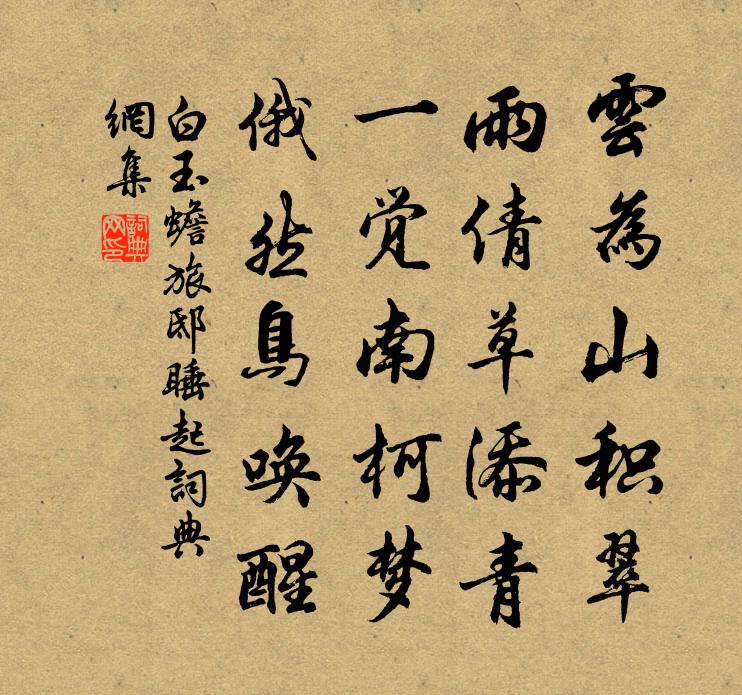 雲為山积翠
雨倩草添青
一觉南柯梦
俄然鳥唤醒
白玉蟾旅邸睡起詞典
網集
詞典网印